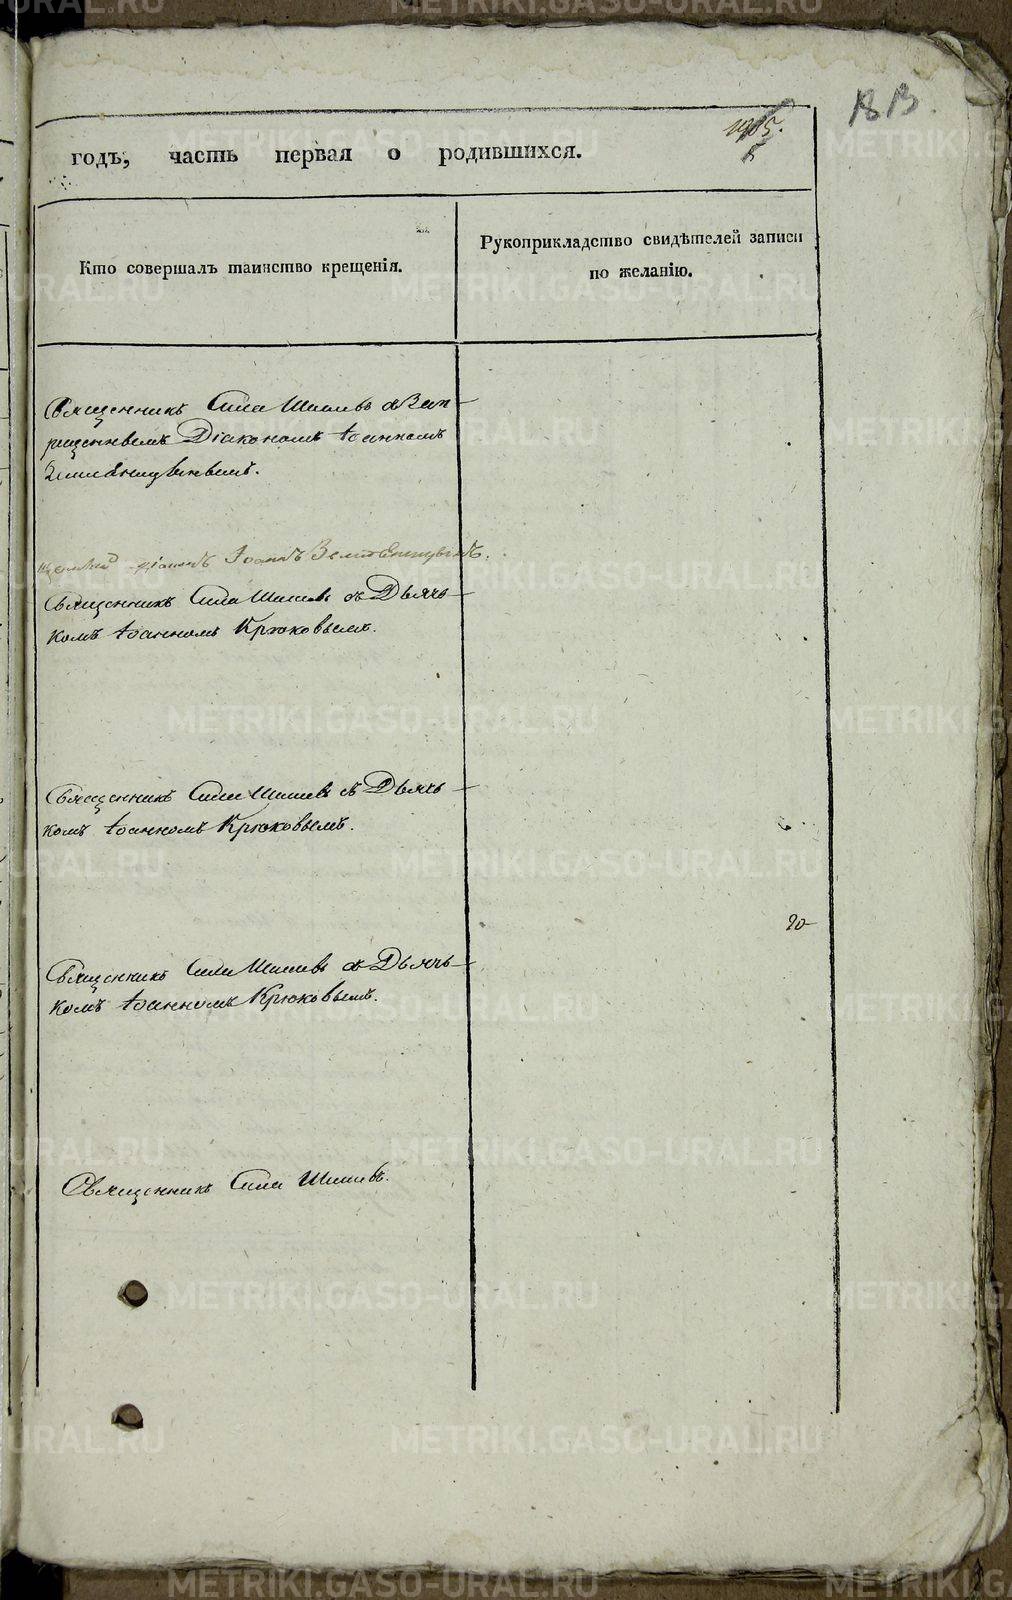 годъ, часть первая о родившихся.
Кто совершалъ таинство крещенія.
Рукоприкладство свидѣтелей записи
по желанію.
Священникъ Сила Шишевъ съ Зап-
рещеннымъ Діакономъ Іоанномъ
Земляницынымъ.
діаконъ Іоаннъ Земляницынъ.
Священникъ Сила Шишевъ съ Дьяч-
комъ Іоанномъ Крюковымъ.
Священникъ Сила Шишевъ съ Дьяч-
комъ Іоанномъ Крюковымъ.
Священникъ Сила Шишевъ съ Дьяч-
комъ Іоанномъ Крюковымъ.
Священникъ Сила Шишевъ.
METRIKI.GASO-URAL.RU